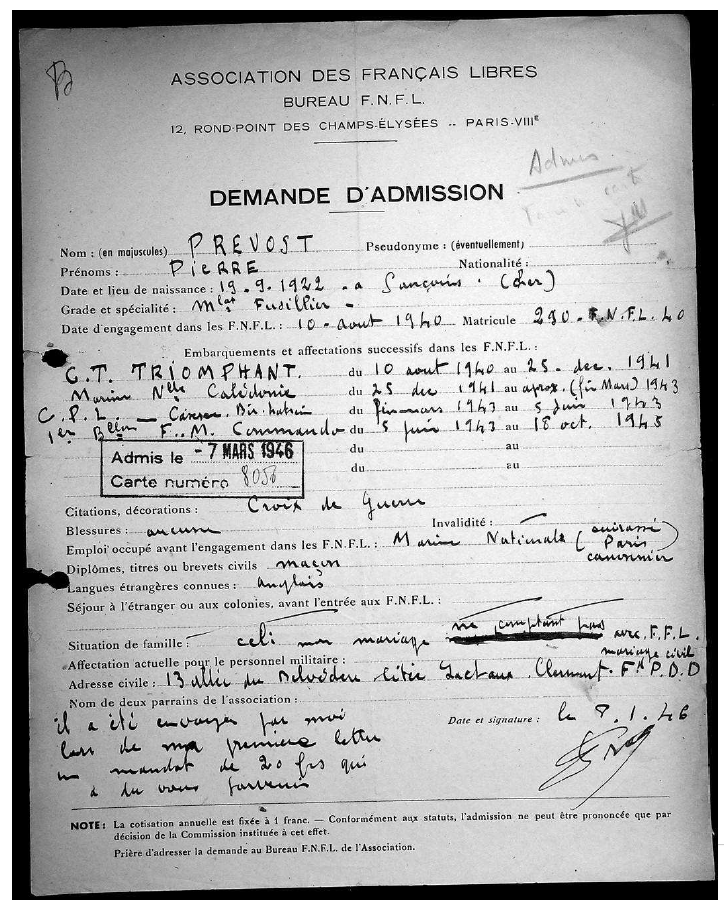 B
ASSOCIATION DES FRANÇAIS LIBRES
BUREAU F.N.F.L.
12, ROND-POINT DES CHAMPS-ÉLYSÉES -- PARIS-VIIIᴱ
Admis
DEMANDE D'ADMISSION
Nom : (en majuscules) PREVOST Pseudonyme : (éventuellement)
Prénoms : PIERRE Nationalité :
Date et lieu de naissance : 19.9.1922 - a Sancoins. (Cher)
Grade et spécialité : Mlot Fusillier -
Date d'engagement dans les F.N.F.L. : 10 - aout 1940 Matricule 290. F.N.F.L. 40
Embarquements et affectations successifs dans les F.N.F.L. :
C.T. TRIOMPHANT. du 10 aout 1940 au 25. dec. 1941
Marine Nlle Calédonie du 25 dec 1941 au aprox. (fin Mars) 1943
C.P.L. du fin mars 1943 au 5 juin 1943
1er Blon F.M. Commando du 5 juin 1943 au 18 oct. 1945
du au
du au
Admis le - 7 MARS 1946
Carte numéro 8056
Citations, décorations : Croix de Guerre
Blessures : aucune Invalidité :
Emploi occupé avant l'engagement dans les F.N.F.L. : Marine Nationale (cuirassé Paris canonnier)
Diplômes, titres ou brevets civils maçon
Langues étrangères connues : anglais
Séjour à l'étranger ou aux colonies, avant l'entrée aux F.N.F.L. :
Situation de famille : celi mon mariage ne comptant pas avec F.F.L. mariage civil
Affectation actuelle pour le personnel militaire :
Adresse civile : 13 allée du Belvédère Citée Clermont-Fd P.D.D
Nom de deux parrains de l'association :
il a été envoyer par moi
lors de ma première lettre
un mandat de 20 frs qui
a du vous parvenir
Date et signature : le 8.1.46
NOTE : La cotisation annuelle est fixée à 1 franc. — Conformément aux statuts, l'admission ne peut être prononcée que par
décision de la Commission instituée à cet effet.
Prière d'adresser la demande au Bureau F.N.F.L. de l'Association.